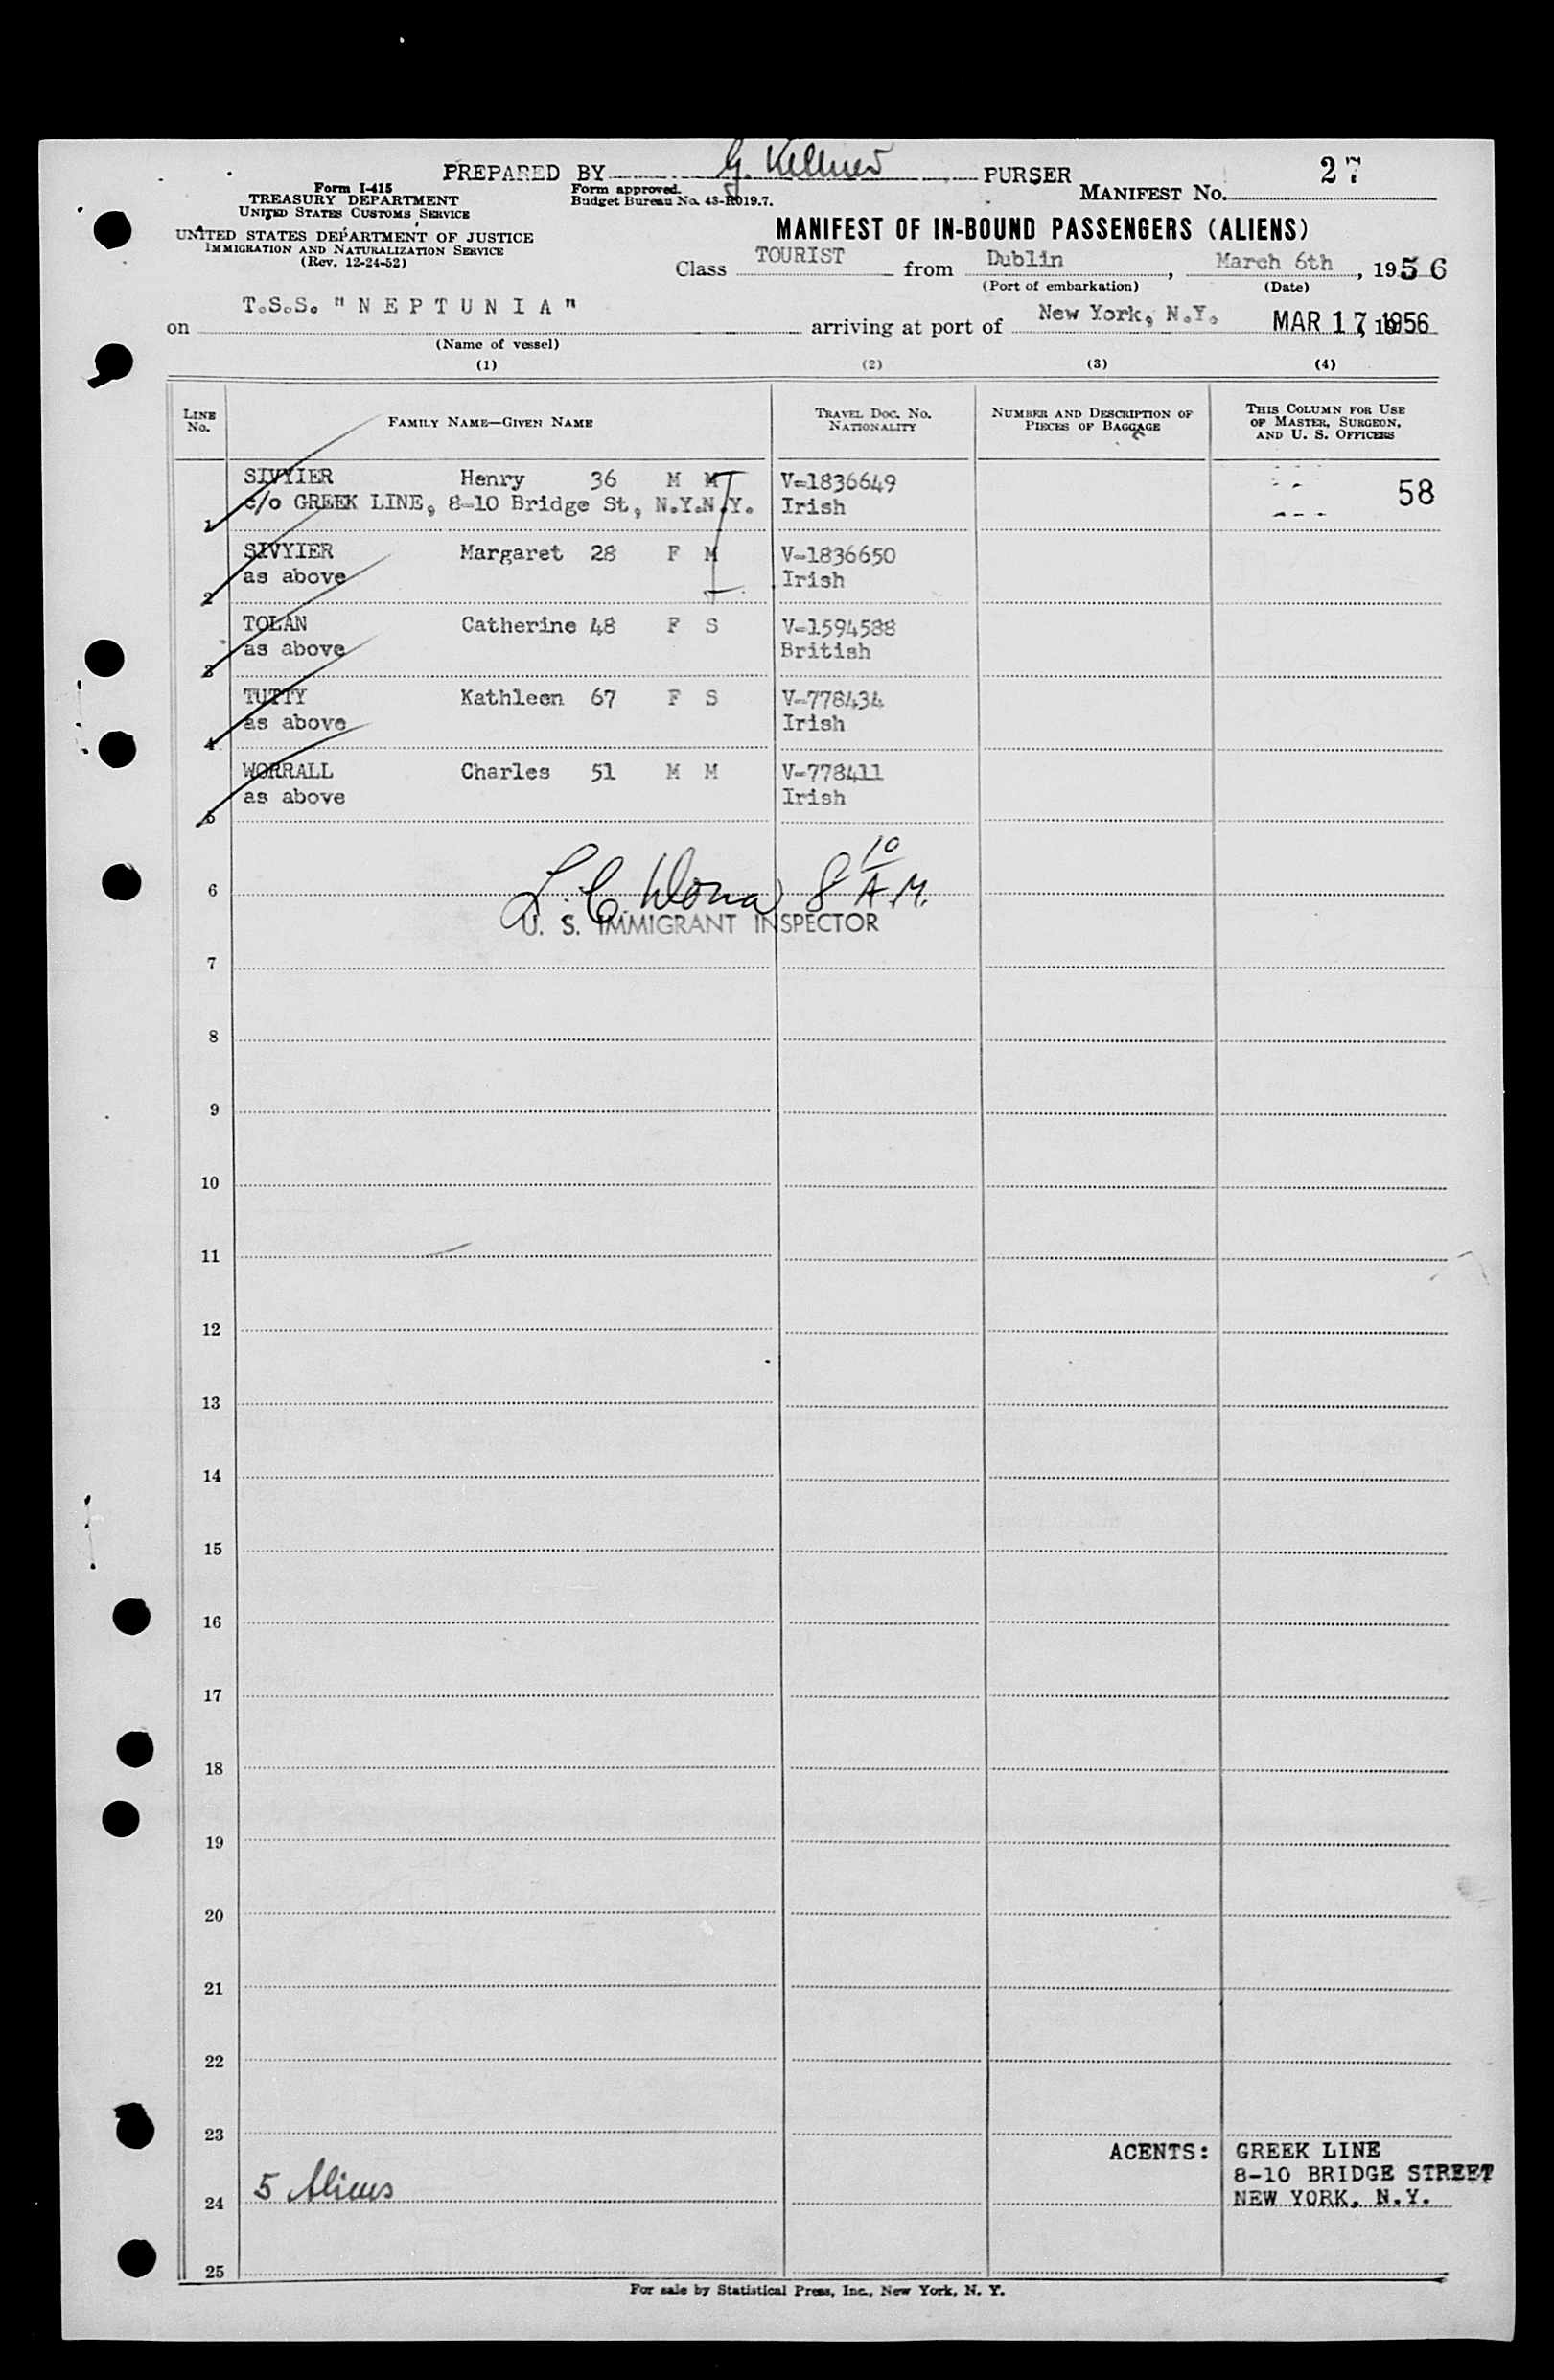 PREPARED BY G. Kellner PURSER
Form I-415
TREASURY DEPARTMENT
UNITED STATES CUSTOMS SERVICE
UNITED STATES DEPARTMENT OF JUSTICE
IMMIGRATION AND NATURALIZATION SERVICE
(Rev. 12-24-52)
Form approved.
Budget Bureau No. 43-R019.7.
MANIFEST No. 27
MANIFEST OF IN-BOUND PASSENGERS (ALIENS)
Class TOURIST from Dublin, March 6th, 1956
(Port of embarkation) (Date)
on T.S.S. "NEPTUNIA" arriving at port of New York, N.Y. MAR 17 1956
(Name of vessel)
(1) (2) (3) (4)
LINE No. FAMILY NAME—GIVEN NAME TRAVEL DOC. NO. NATIONALITY NUMBER AND DESCRIPTION OF PIECES OF BAGGAGE THIS COLUMN FOR USE OF MASTER, SURGEON, AND U. S. OFFICERS
SIVYIER Henry 36 M M V-1836649 58
1 c/o GREEK LINE, 8-10 Bridge St, N.Y.N.Y. Irish
SIVYIER Margaret 28 F M V-1836650
2 as above Irish
TOLAN Catherine 48 F S V-1594588
3 as above British
TUTTY Kathleen 67 F S V-778434
4 as above Irish
WORRALL Charles 51 M M V-778411
5 as above Irish
6 8 10 A.M.
U. S. IMMIGRANT INSPECTOR
7
8
9
10
11
12
13
14
15
16
17
18
19
20
21
22
23
AGENTS: GREEK LINE
8-10 BRIDGE STREET
24 5 Aliens NEW YORK, N.Y.
25
For sale by Statistical Press, Inc., New York, N. Y.